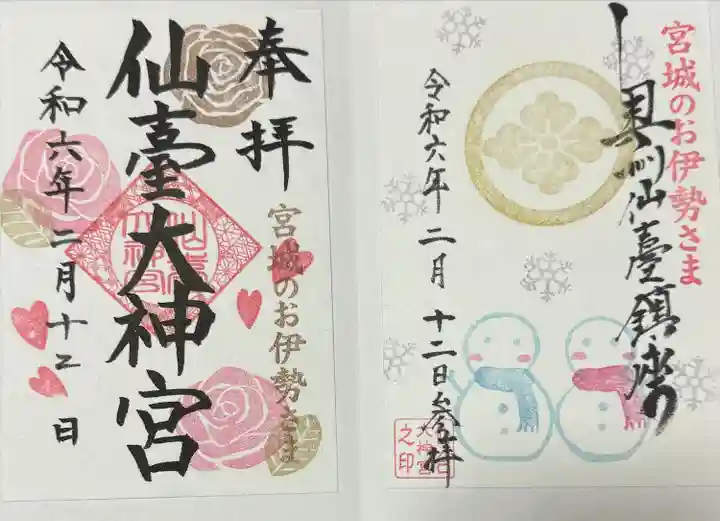 奉拝
宮城のお伊勢さま
仙臺大神宮
令和六年二月十二日
宮城のお伊勢さま
奥州仙臺鎮座
令和六年二月十二日参拝
大神宮
之印